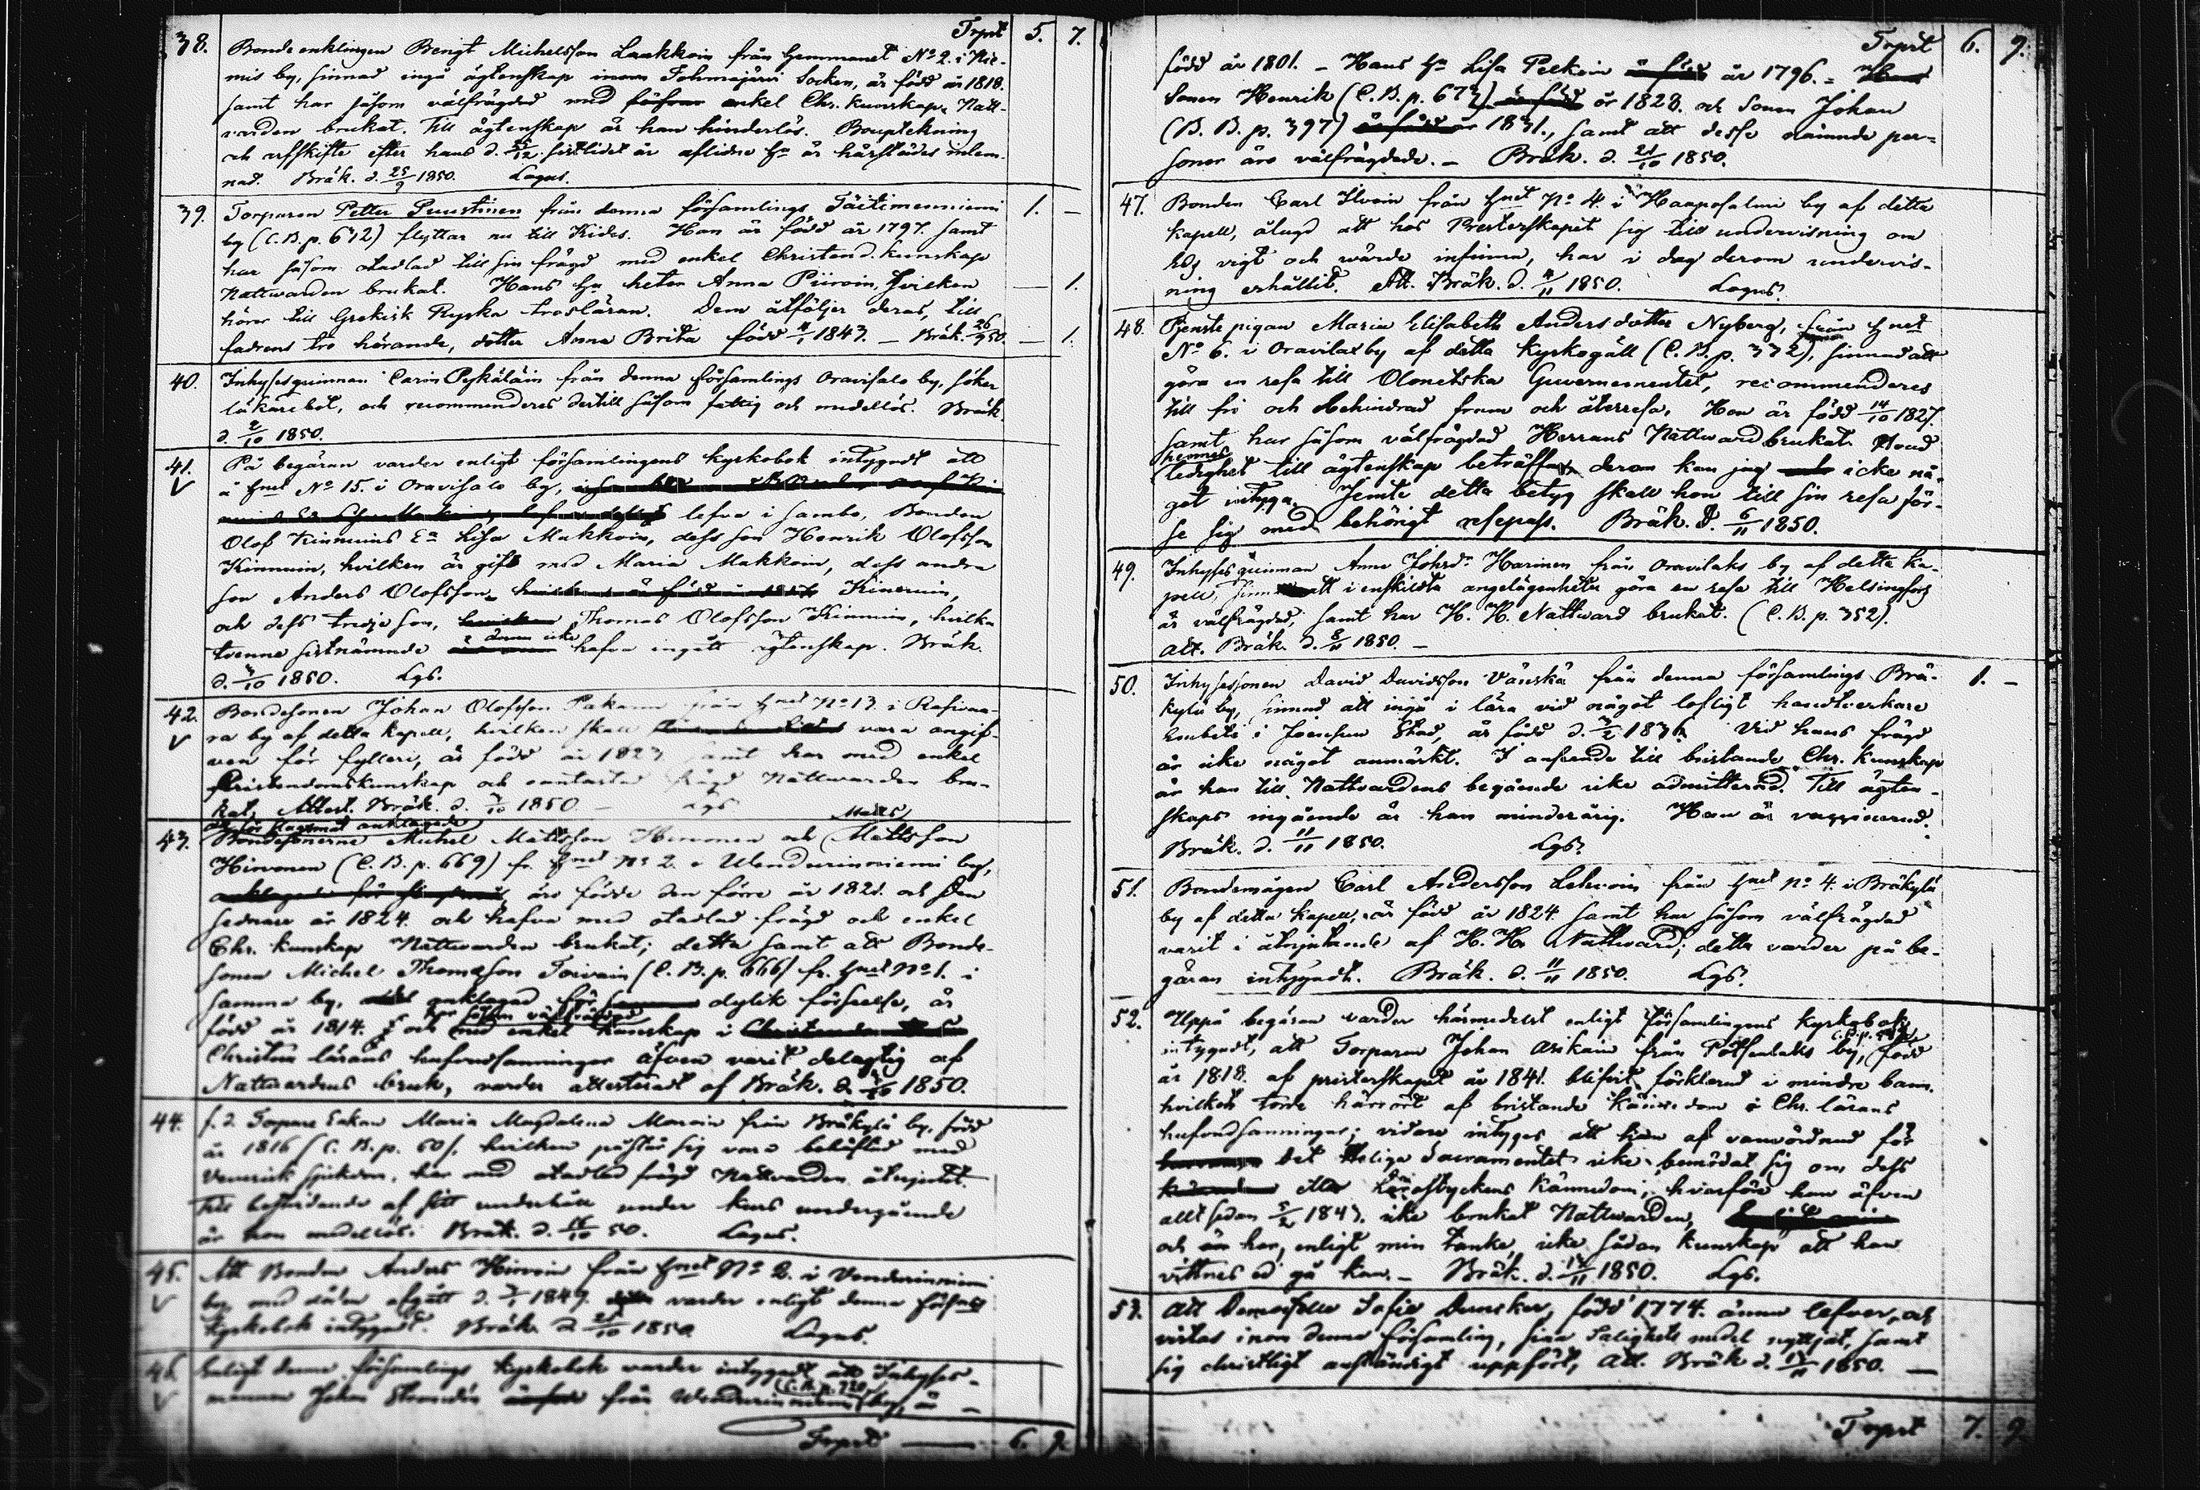 Trprt 5. 7.
38. Bonde enklingen Bengt Michelsson Laakkoin från Hemmanet No 2. i Nie-
mis by, sinnad ingå ägtenskap inom Tohmajärvi Socken, är född år 1818.
samt har såsom välfrägdad med enkel Chr. kunskap, Natt-
varden brukat. Till ägtenskap är han hinderlös. Bouptekning
och arfskifte efter hans d. 25/12 sistlidet år aflidne Hu är härstädes inlem-
nad. Bräk. d. 25/9 1850. Lagus.
39. Torparen Petter Puustinen från denna församlings Täitimenniemi 1. –
by (C. B. p. 632) flyttar nu till Kides. Han är född år 1797. samt
har såsom otadlad till sin frägd med enkel Christend. kunskap
Nattvarden brukat. Hans Hu heter Anna Piiroin, hvilken — 1.
hörer till Grekisk Ryska trosläran. Dem åtföljer deras, till
fadrens tro hörande, dotter Anna Brita född 1843. – Bräk. 26/9 50. — 1.
40. Inhyses quinnan Carin Pykäläin från denna församlings Oravisalo by, söker
läkare bot, och recommenderes dertill såsom fattig och medellös. Bräk.
d. 2/10 1850.
41. På begäran varder enligt församlingens kyrkobok intygadt att
å Hmt No 15. i Oravisalo by,
lefva i sambo, Bonden
Olof Kinnuins Ea Lisa Makkoin, dess son Henrik Olofsson
Kinnuin, hvilken är gift med Maria Makkoin, dess andra
son Anders Olofsson Kinnuin,
och dess tredje son, Thomas Olofsson Kinnuin, hvilka
tvenne sistnämnde ännu icke hafva ingått ägtenskap. Bräk.
d. 3/10 1850. Lgs.
42. Bondesonen Johan Olofsson från Hmt No 13 i Rasivaa-
ra by af detta Kapell, hvilken skall vara angif-
ven för fylleri, är född år 1823 samt har med enkel
Christendomskunskap och frägd Nattvarden bru-
kat. Attest. Bräk. d. 1850 – Lgs
för klagomål anklagade
43. Bondesönerne Michel Mattsson Hirvonen och Matts Mattsson
Hirvonen (C. B. p. 669) fr. Hmt No 2. i by,
äro födde den förre år 1821. och den
sednare år 1824. och hafva med otadlad frägd och enkel
Chr. kunskap Nattvarden brukat; detta samt att Bonde-
sonen Michel Thomasson Toivain (C. B. p. 666) fr. Hmt No 1. i
samma by, anklagad för dylik förseelse, är
född år 1814. och med enkel kunskap i
Christna lärans hufvudsanningar äfven varit delagtig af
Nattvardens bruk, varder attesteradt af Bräk. d. 1850.
44. f. d. Torpare Enkan Maria Magdalena från Bräkylä by, född
år 1816 (C. B. p. 60), hvilken påstår sig vara behäftad med
Venerisk sjukdom, har med otadlad frägd Nattvarden åtnjutit.
Till bestridande af sitt underhåll under kurs undergående
är hon medellös. Bräk. d. 50. Lagus.
45. Att Bonden Anders Hirvoin från Hmt No 2. i
by, med döden afgått d. 1849. varder enligt denna förs:gs
Kyrkobok intygadt. Bräk. d. 21/10 1850. Lagus.
46. Enligt denna församlings Kyrkobok varder intygadt, att Inhyses-
mannen Johan från (C. B. p. 720) by, är –
Trprt — 6. 9.
Trprt 6. 9.
född år 1801. – Hans Hu Lisa Pelkoin år 1796. –
Sonen Henrik (C. B. p. 673) år 1828. och Sonen Johan
(B. B. p. 397) 1831, samt att desse nämnde per-
soner äro välfrägdade. – Bräk. d. 21/10 1850.
47. Bonden Carl Ilvoin från Hmt No 4. i Haaposalmi by af detta
kapell, ålagd att hos Presterskapet sig till undervisning om
Edg vigt och wärde infinna, har i dag derom undervis-
ning erhållit. Att. Bräk. d. 4/11 1850. Lagus.
48. Tjenste pigan Maria Elisabeth Andersdotter Nyberg, från Hmt
No 6. i Oravilax by af detta Kyrkogäll (C. B. p. 372), sinnad att
göra en resa till Olonetska Guvernementet, recommenderes
till fri och obehindrad fram och återresa. Hon är född 14/10 1827.
samt har såsom välfrägdad Herrans Nattward brukat. Hvad
hennes
ledighet till ägtenskap beträffar, derom kan jag icke nå-
got intyga. Jemte detta betyg skall hon till sin resa för-
se sig med behörigt resepass. Bräk. d. 6/11 1850.
49. Inhyses quinnan Anna Johsdr Harinen från Oravilaks by af detta ka-
pell, sinnad att i enskildta angelägenheter göra en resa till Helsingfors
är välfrägdad, samt har H. H. Nattward brukat. (C. B. p. 352).
Att. Bräk. d. 8/11 1850. –
50. Inhysessonen David Davidsson Vänskä från denna församlings Brä- 1. –
kylä by, sinnad att ingå i lära vid något lofligt handtverkare
Embete i Joensuu Stad, är född d. 1836. Vid hans frägd
är icke något anmärkt. I anseende till bristande Chr. kunskap
är han till Nattvardens begående icke admitterad. Till ägten-
skaps ingående är han minderårig. Han är vaccinerad.
Bräk. d. 11/11 1850. Lgs.
51. Bondemågen Carl Andersson Lehvoin från Hmt No 4. i Bräkylä
by af detta Kapell, är född år 1824. samt har såsom välfrägdad
varit i åtnjutande af H. Ha Nattward; detta varder på be-
gäran intygadt. Bräk. d. 11/11 1850. Lgs.
52. Uppå begäran varder härmedelst enligt församlingens Kyrkobok
intygadt, att Torparen Johan Asikain från Pötsönlaks by, född
år 1818. af presterskapet år 1841. blifvit förklarad i mindre barn.
hvilket torde härrört af bristande kännedom i Chr. lärans
hufvudsanningar; vidare intyges att han af vanvördnad för
det Heliga Sacramentet icke bemödat sig om dess
eller Lärostyckens kännedom; hvarföre han äfven
allt sedan 5/2 1843. icke brukat Nattvarden,
och än har, enligt min tanke, icke sådan kunskap att han
vittnes ed gå kan. – Bräk. d. 14/11 1850. Lgs.
53. Att Demoiselle Sofie Duncker, född 1774. ännu lefver, och
vistas inom denna församling, sina Salighets medel nyttjat, samt
sig christligt anständigt uppfört, Att. Bräk d. 1850. —
Trprt 7. 9.